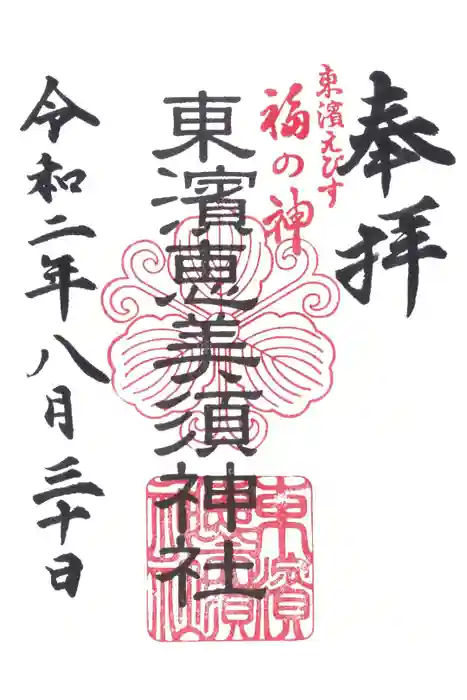 奉拝
東濱えびす
福の神
東濱恵美須神社
令和二年八月三十日